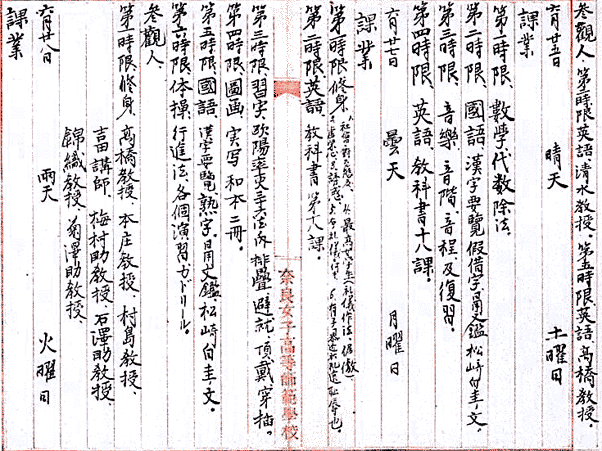 参觀人、第一時限英語、清水教授、第五時限英語、高橋教授、
六月廿五日 晴天 土曜日
課業
第一時限、數學、代數除法、
第二時限、國語、漢字要覽假借字、日用文鑑松崎白圭ノ文。
第三時限、音樂、音階、音程、及復習。
第四時限、英語、教科書十八課。
六月廿七日 曇天 月曜日
課業
第一時限、修身、
第二時限、英語、教科書第十八課。
第三時限、習字、歐陽率更三十六法ノ内排疊避就、頂戴穿插。
第四時限、圖画、実写、和本二冊。
第五時限、國語、漢字要覽、熟字、日用文鑑、松崎白圭ノ文。
第六時限、体操、行進法、各個演習、カドリール。
参觀人、
第一時限、修身、高橋教授、本庄教授、村島教授、
吉田講師、梅村助教授、石澤助教授、
錦織教授、菊澤助教授、
六月廿八日 雨天 火曜日
課業
奈良女子高等師範學校